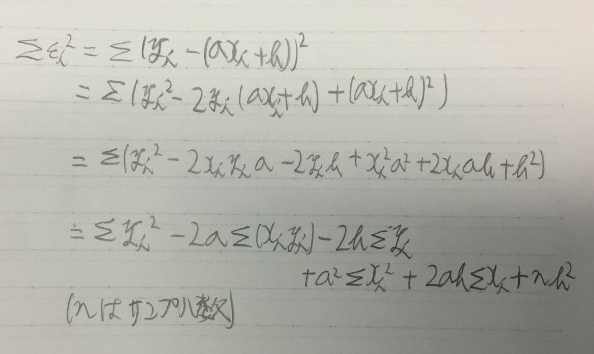 Σεᵢ² = Σ(yᵢ − (axᵢ+b))²
= Σ(yᵢ² − 2yᵢ(axᵢ+b) + (axᵢ+b)²)
= Σ(yᵢ² − 2xᵢyᵢa − 2yᵢb + xᵢ²a² + 2xᵢab + b²)
= Σyᵢ² − 2aΣ(xᵢyᵢ) − 2bΣyᵢ
+ a²Σxᵢ² + 2abΣxᵢ + nb²
(nはサンプル数)